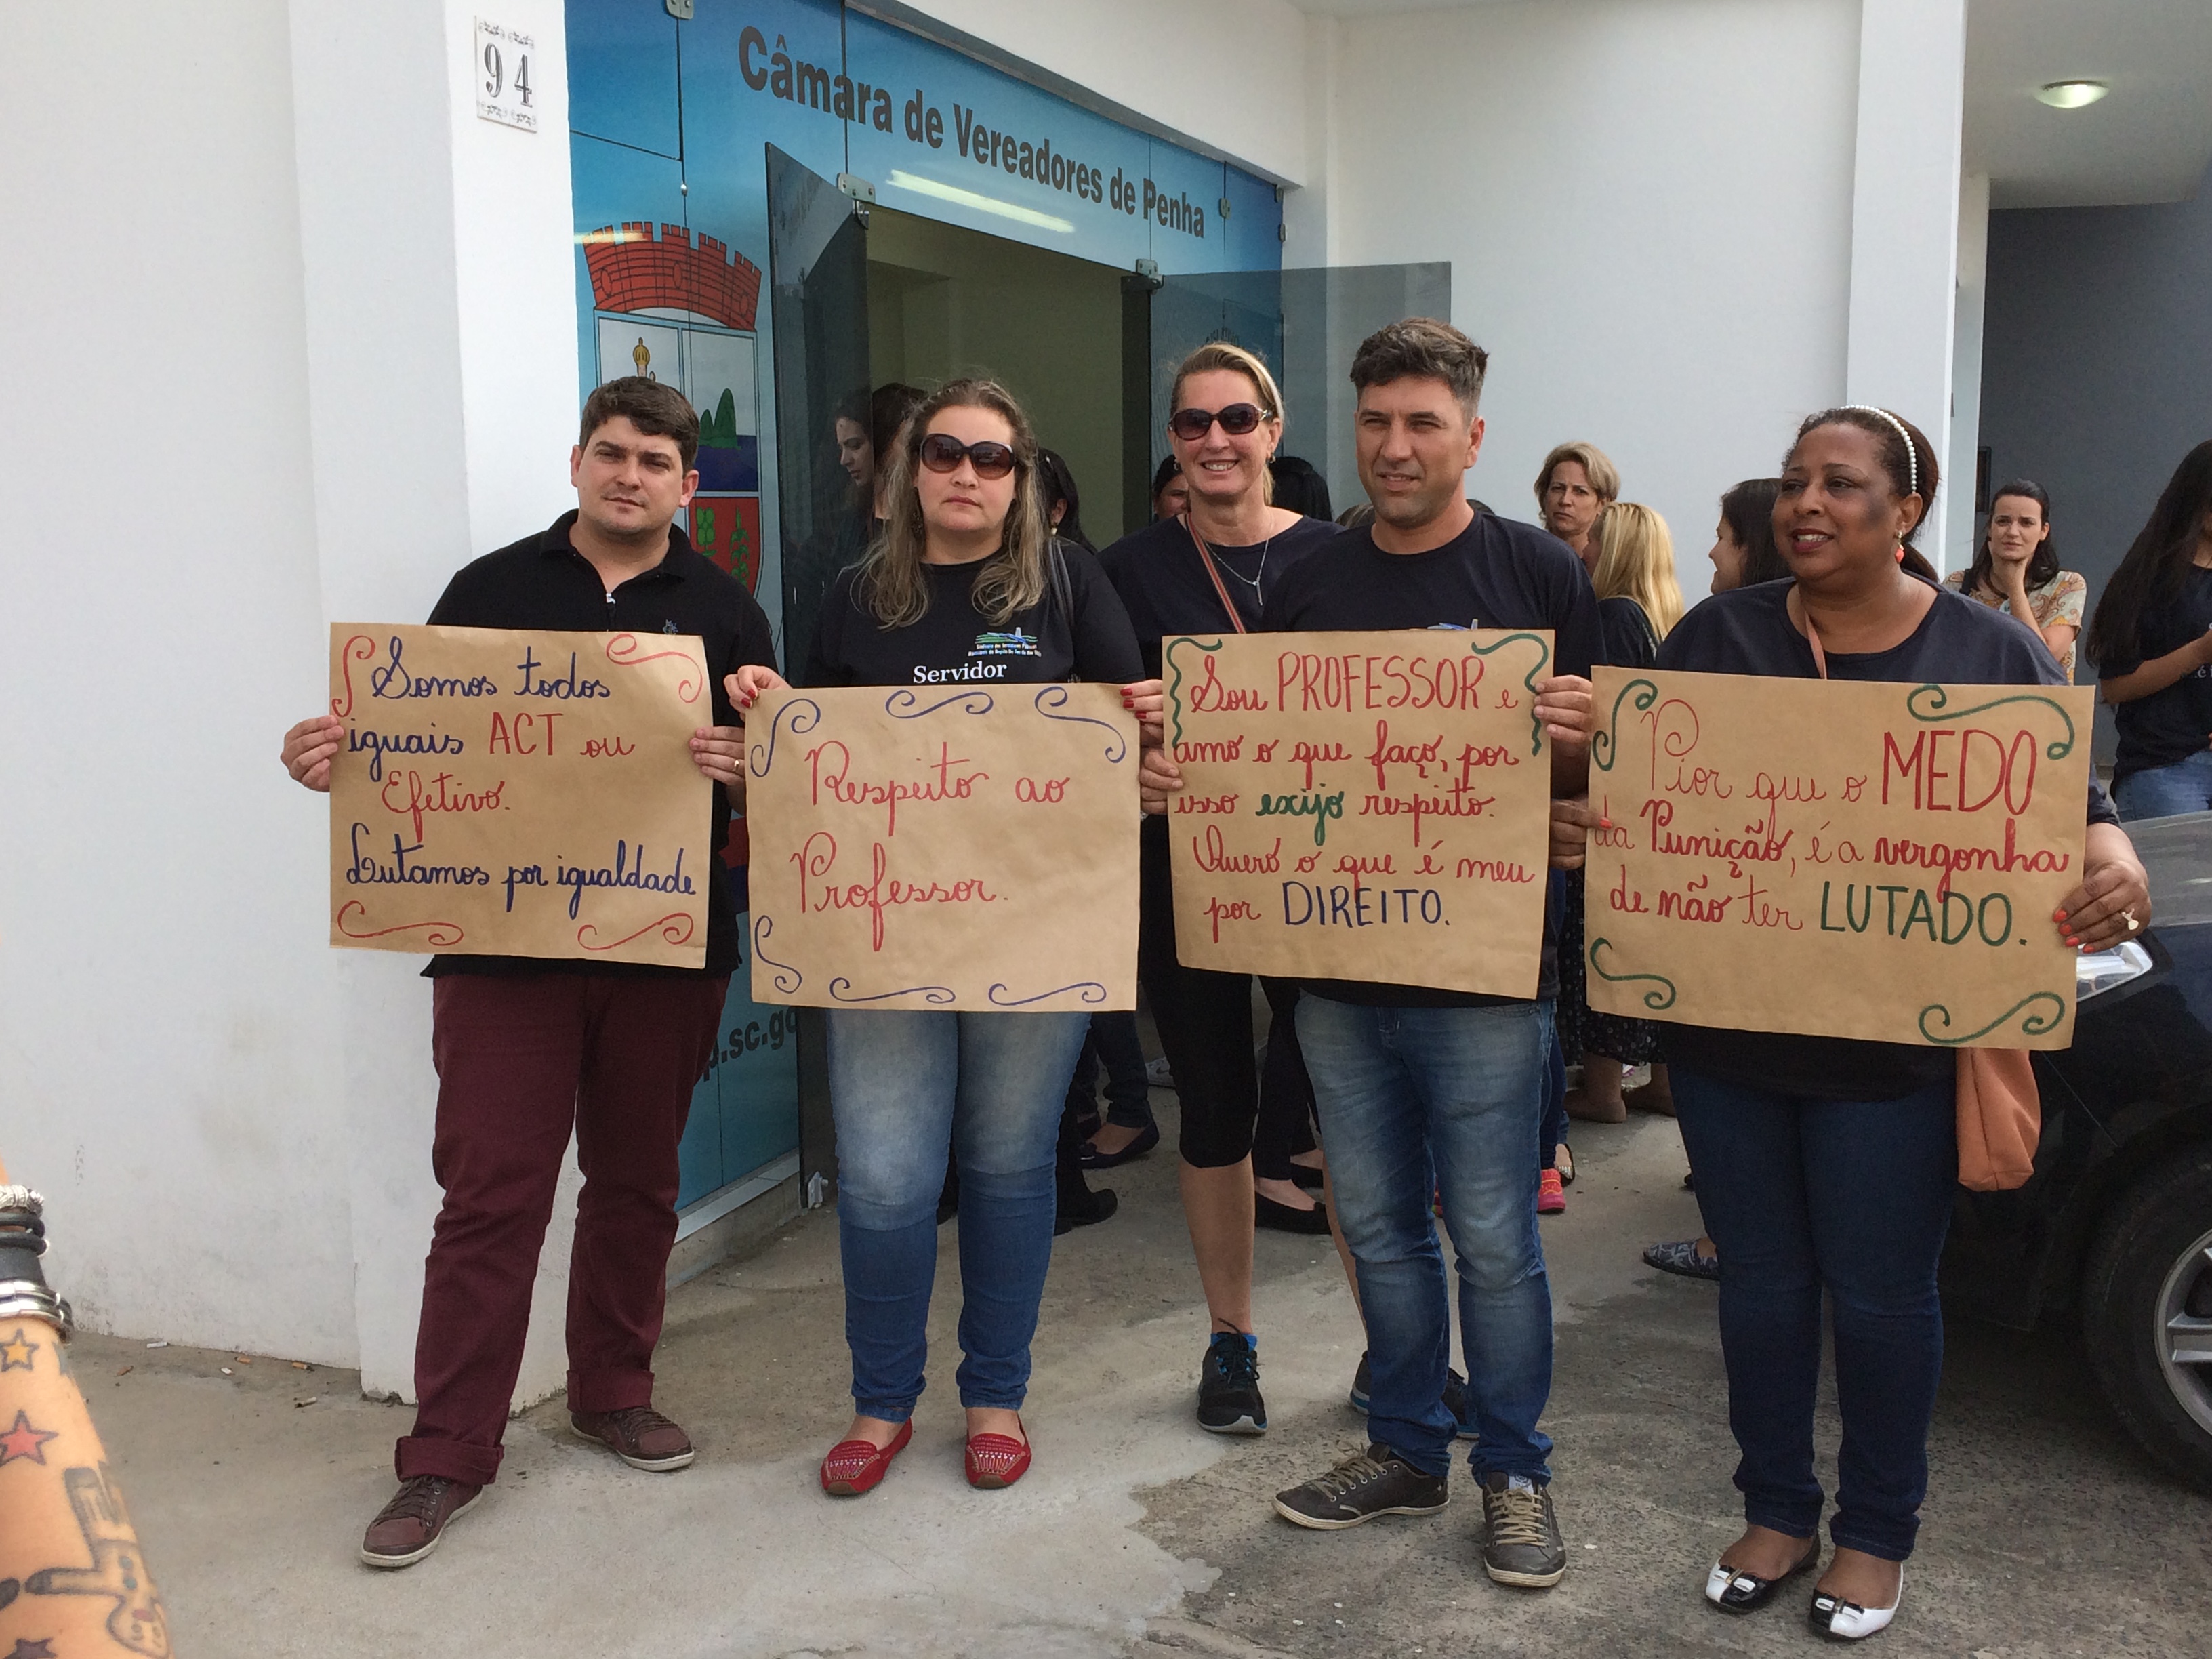 94
Câmara de Vereadores de Penha
Servidor
Somos todos
iguais ACT ou
Efetivo.
Lutamos por igualdade
Respeito ao
Professor.
Sou PROFESSOR e
amo o que faço, por
isso exijo respeito.
Quero o que é meu
por DIREITO.
Pior que o MEDO
da Punição, é a vergonha
de não ter LUTADO.
.sc.go